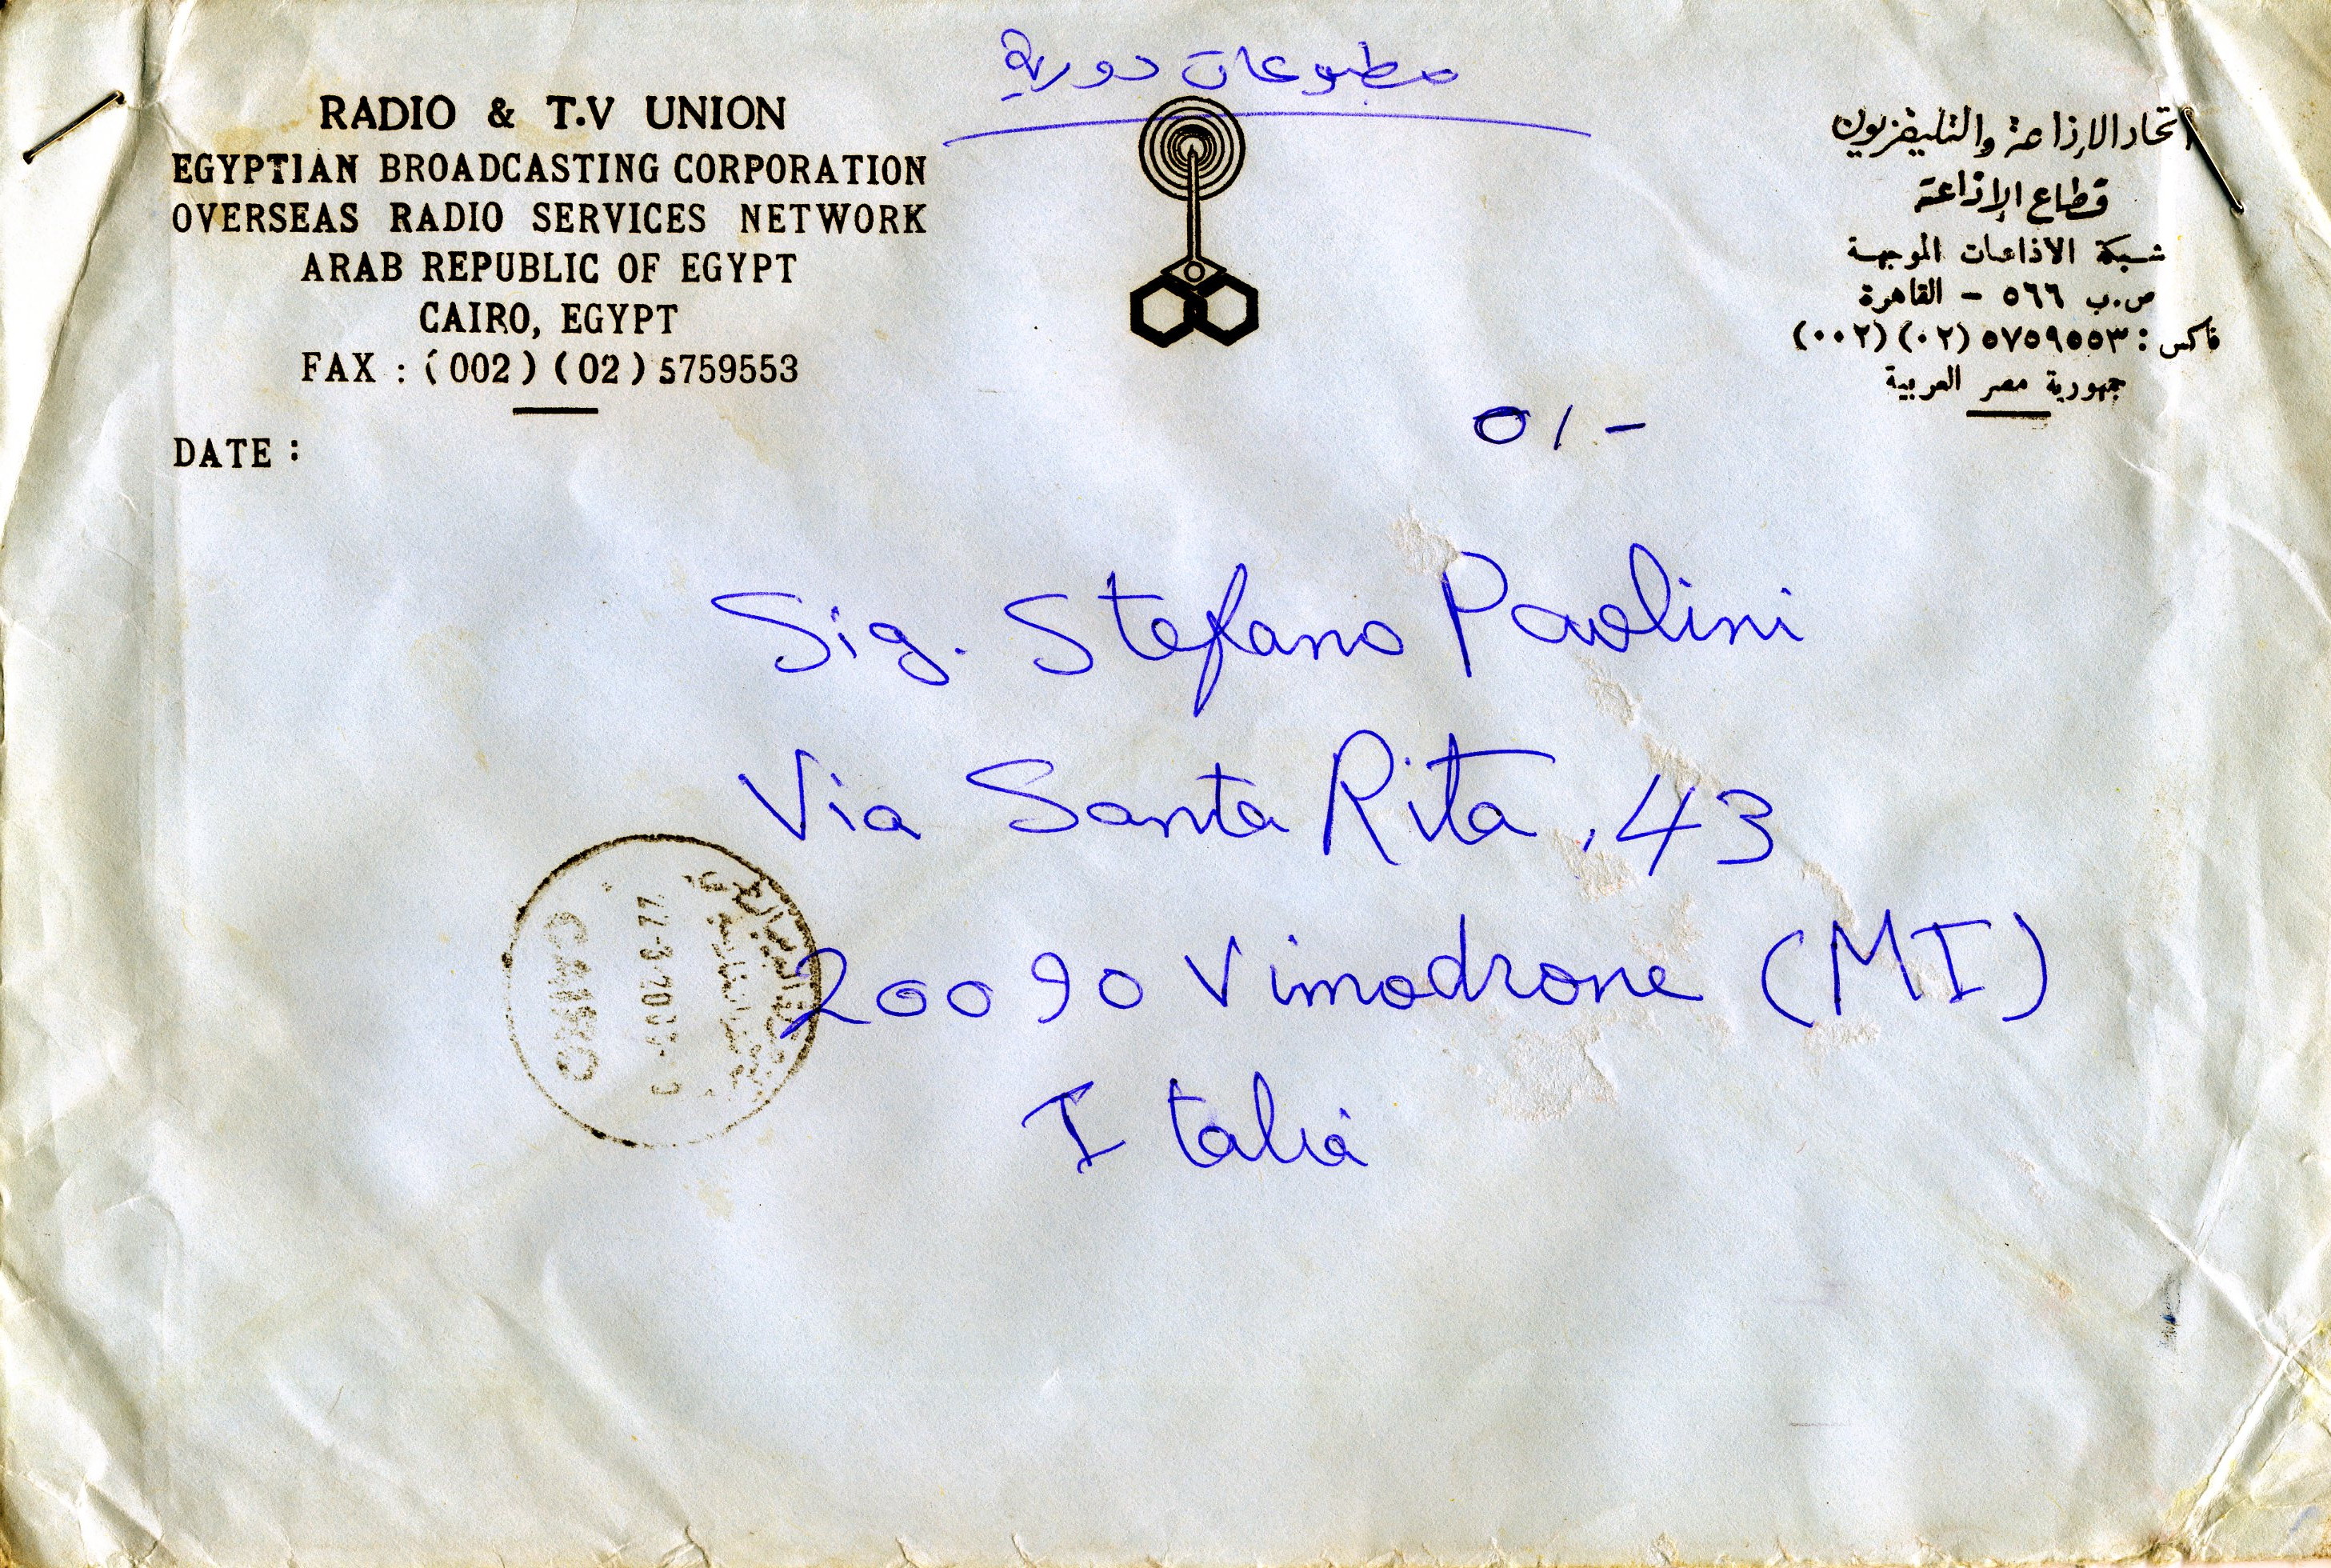 مطبوعات دورية
RADIO & T.V UNION
EGYPTIAN BROADCASTING CORPORATION
OVERSEAS RADIO SERVICES NETWORK
ARAB REPUBLIC OF EGYPT
CAIRO, EGYPT
FAX : (002) (02) 5759553
DATE :
اتحاد الإذاعة والتليفزيون
قطاع الإذاعة
شبكة الاذاعات الموجهة
ص.ب ٥٦٦ - القاهرة
فاكس : ٥٧٥٩٥٥٣ (٠٢) (٠٠٢)
جمهورية مصر العربية
٥١ -
Sig. Stefano Paolini
Via Santa Rita, 43
20090 Vimodrone (MI)
Italia
CAIRO